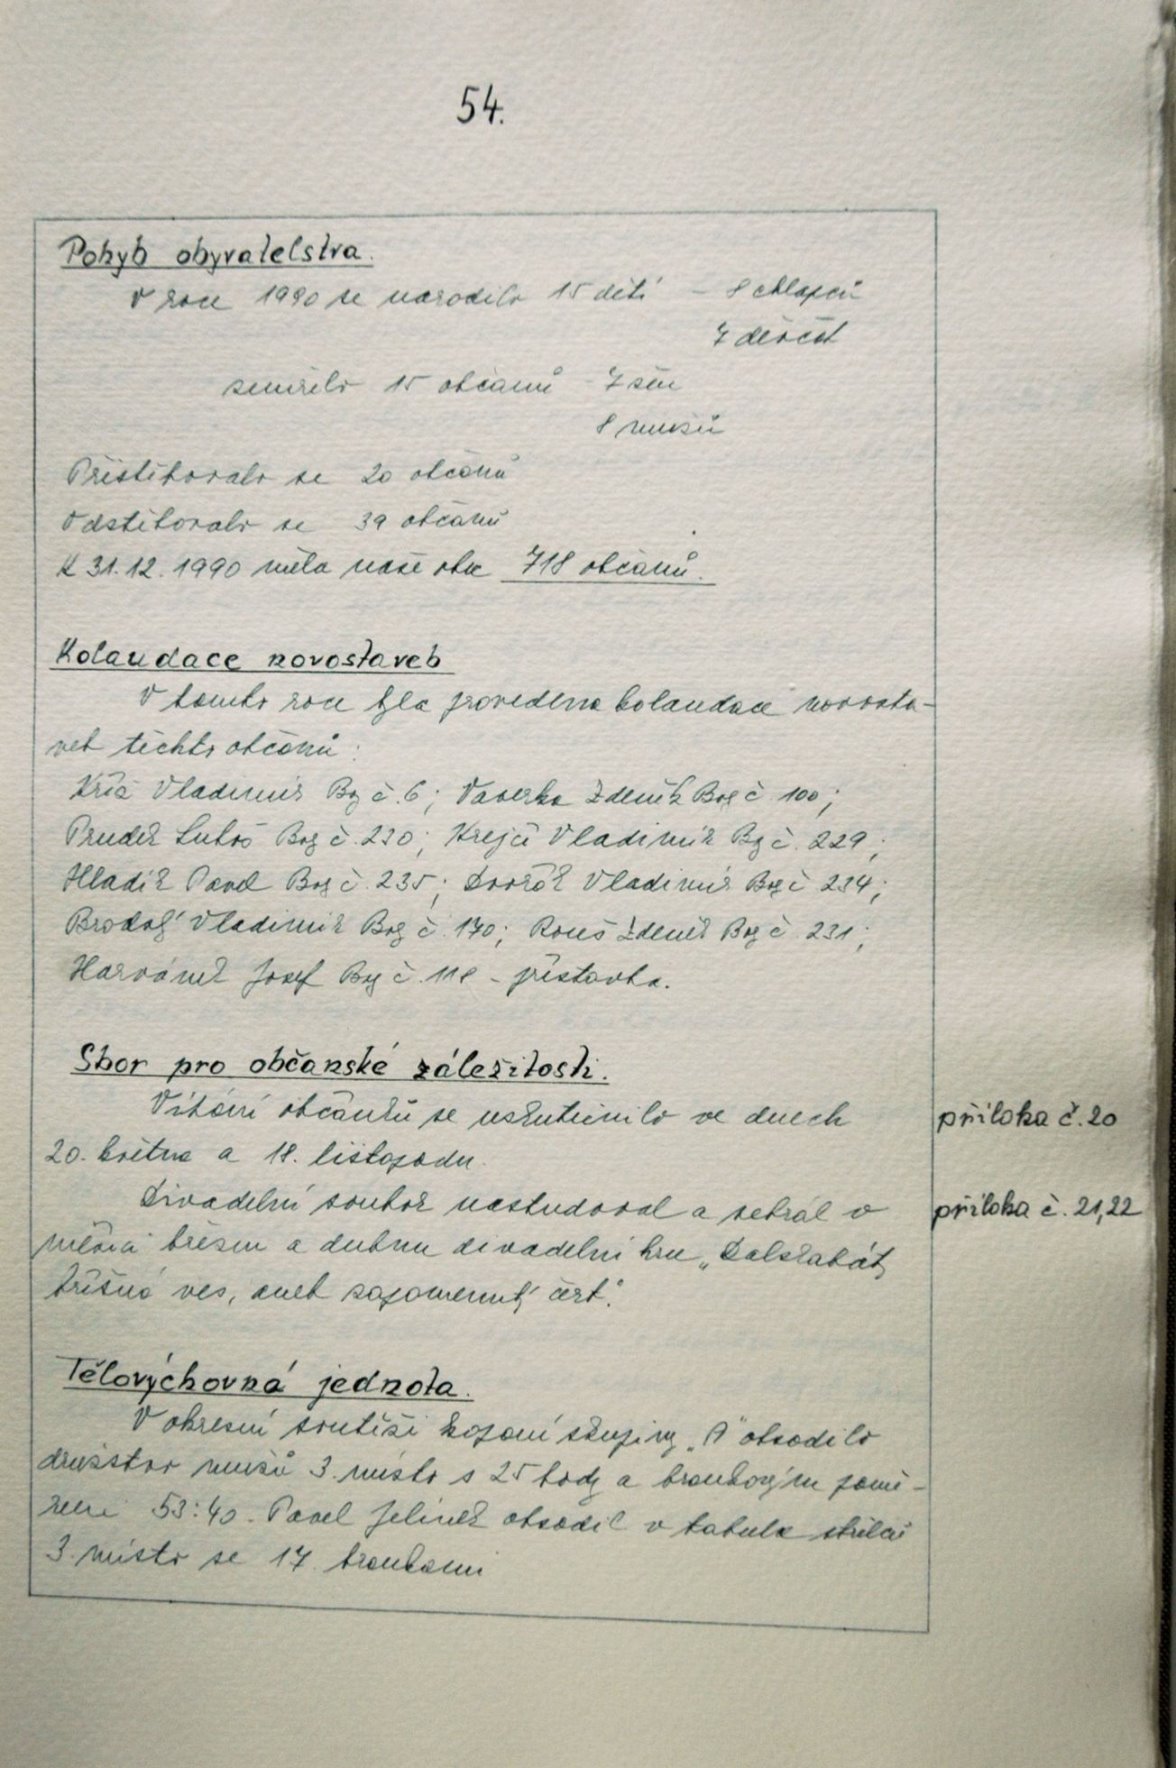 54.
Pohyb obyvatelstva.
V roce 1990 se narodilo 15 dětí – 8 chlapců
7 děvčat
zemřelo 15 občanů – 7 žen
8 mužů
Přistěhovalo se 20 občanů
Odstěhovalo se 39 občanů
K 31.12.1990 měla naše obec 718 občanů.
Kolaudace novostaveb
V tomto roce byla provedena kolaudace novosta-
veb těchto občanů:
Kříž Vladimír č. 6; Vaverka Zdeněk č. 100;
Pruder Luboš č. 230; Krejčí Vladimír č. 229;
Hladík Pavel č. 235; Dvořák Vladimír č. 234;
Brodský Vladimír č. 170; Rouš Zdeněk č. 231;
Harvánek Josef č. 118 – přístavba.
Sbor pro občanské záležitosti.
Vítání občánků se uskutečnilo ve dnech příloha č. 20
20. května a 18. listopadu.
Divadelní soubor nastudoval a sehrál v příloha č. 21,22
měsíci březnu a dubnu divadelní hru „Dalskabáty
hříšná ves, aneb zapomenutý čert".
Tělovýchovná jednota.
V okresní soutěži kopané skupiny „A" obsadilo
družstvo mužů 3. místo s 25 body a brankovým pomě-
rem 53:40. Pavel Jelínek obsadil v tabulce střelců
3. místo se 17 brankami